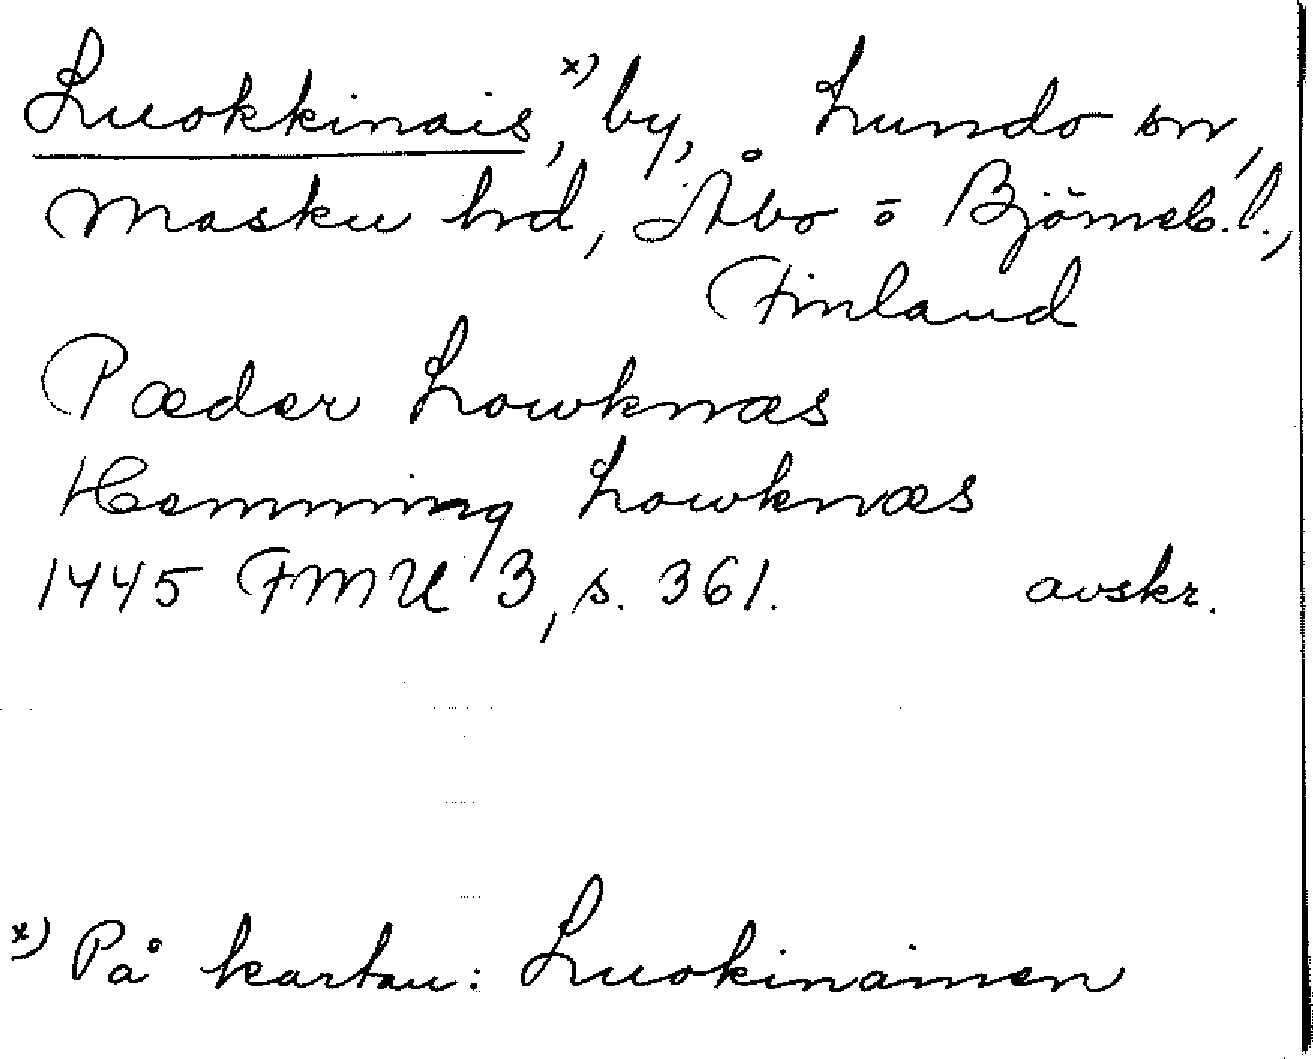 Luokkinais, x) by, Lundo sn,
Masku hd, Åbo o Björneb. l.,
Finland
Pæder Lowknæs
Hemming Lowknæs
1445 FMU 3, s. 361. avskr.
x) På kartan: Luokinainen